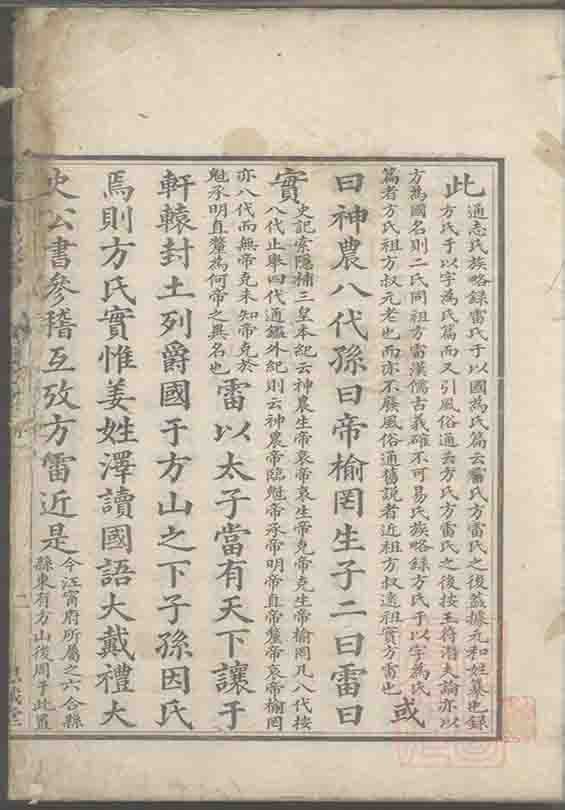 此
通志氏族略錄雷氏于以國為氏篇云雷氏方雷氏之後蓋據元和姓纂也錄
方氏于以字為氏篇而又引風俗通云方氏方雷氏之後按王符潛夫論亦以
方為國名則二氏同祖方雷漢儒古義確不可易氏族略錄方氏于以字為氏
篇者方氏祖方叔元老也而亦不廢風俗通舊說者近祖方叔遠祖實方雷也
或
曰神農八代孫曰帝榆罔生子二曰雷曰
實
史記索隱補三皇本紀云神農生帝哀帝哀生帝克帝克生帝榆罔凡八代按
八代止舉四代通鑑外紀則云神農帝臨魁帝承帝明帝直帝釐帝哀帝榆罔
亦八代而無帝克未知帝克於
魁承明直釐為何帝之異名也
雷以太子當有天下讓于
軒轅封土列爵國于方山之下子孫因氏
焉則方氏實惟姜姓澤讀國語大戴禮大
史公書參稽互攷方雷近是
今江甯府所屬之六合縣
縣東有方山後周于此置
二